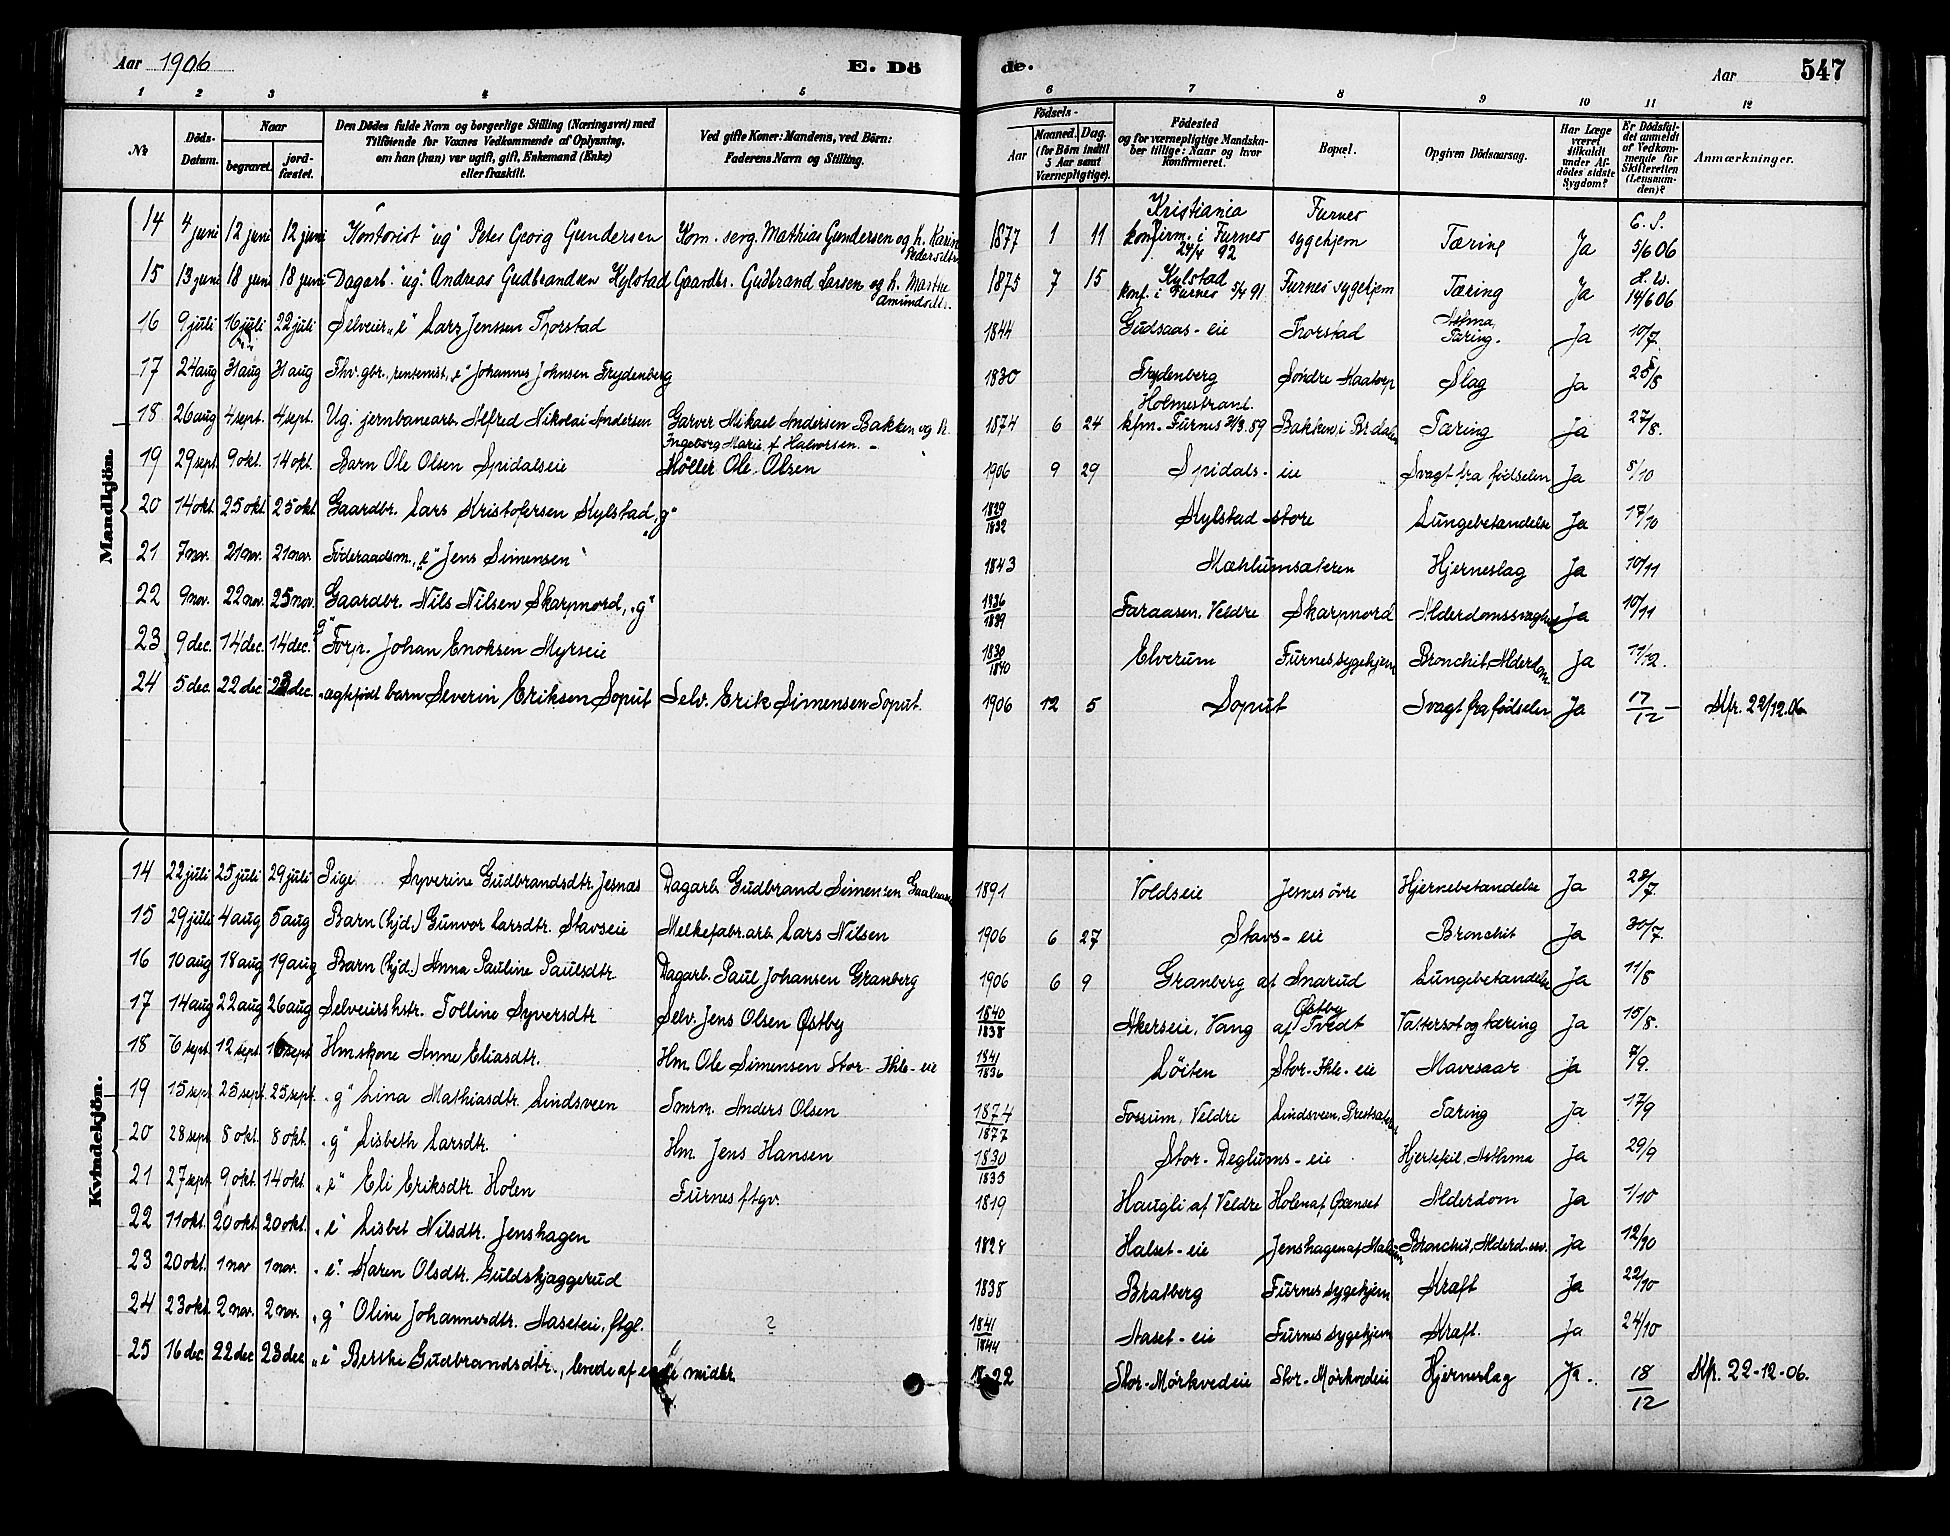 Aar 1906 E. Dö de. Aar 547
1 2 3 4 5 6 7 8 9 10 11 12
№ Döds-Datum. Naar begravet. jord-fæstet. Den Dödes fulde Navn og borgerlige Stilling (Næringsvei) med Tilföiende for Voxnes Vedkommende af Oplysning, om han (hun) var ugift, gift, Enkemand (Enke) eller fraskilt. Ved gifte Koner: Mandens, ved Börn: Faderens Navn og Stilling. Födsels- Aar Maaned. Dag. (for Börn indtil 5 Aar samt Værnepligtige). Födested og for værnepligtige Mandskaber tillige: Naar og hvor Konfirmeret. Bopæl. Opgiven Dödsaarsag. Har Læge været tilkaldt under Afdödes sidste Sygdom? Er Dödsfaldet anmeldt af Vedkommende for Skifteretten (Lensmanden)? Anmærkninger.
Mandkjön.
14 4 juni 12 juni 12 juni Kontorist "ug" Peter Georg Gundersen Kom. serg. Mathias Gundersen og h. Karin Pedersdtr. 1877 1 11 Kristiania konfirm. i Furnes 24/4 92 Furnes sygehjem Tæring Ja C. S. 5/6 06
15 13 juni 18 juni 18 juni Dagarb. "ug" Andreas Gudbrandsen Kylstad Gaardbr. Gudbrand Larsen og h. Marthe Amundsdtr. 1875 7 15 Kylstad konf. i Furnes 5/4 91 Furnes sygehjem Tæring Ja 14/6 06
16 9 juli 16 juli 22 juli Selveier "e" Lars Jenssen Thorstad 1844 Gudsaas-eie Torstad Astma, Tæring. Ja 10/7.
17 24 aug 31 aug 31 aug Fhv. gbr., rentenist, "e" Johannes Johnsen Frydenberg 1830 Frydenberg Söndre Slag Ja 25/8
18 26 aug 4 sept. 4 sept. Ug. jernbanearb. Alfred Nikolai Andersen Garver Mikael Andersen Bakken og h. Ingeborg Marie f. Halvorsen. 1874 6 24 Holmestrand. kfm. Furnes 31/3. 89 Bakken i Brdalen Tæring Ja 27/8.
19 29 sept. 9 okt. 14 okt. Barn Ole Olsen Spidalseie Möller Ole Olsen 1906 9 29 Spidals-eie Svagt fra födselen Ja 5/10
20 14 okt. 25 okt. 25 okt. Gaardbr. Lars Kristofersen Kylstad, "g" 1829/1832 Kylstad store Lungebetændelse Ja 17/10
21 7 nov. 21 nov. 21 nov. Föderaadsm., "e" Jens Simensen 1843 Mæhlumsæteren Hjerneslag Ja 10/11
22 9 nov. 22 nov. 25 nov. Gaardbr. Nils Nilsen Skarpnord, "g" 1836/1839 Faraasen, Veldre Skarpnord Alderdomssvaghed Ja 10/11
23 9 dec. 14 dec. 14 dec. "g" Forp. Johan Enoksen Myrseie 1830/1840 Elverum Furnes sygehjem Bronchit, Alderdom Ja 11/12.
24 5 dec. 22 dec 23 dec. "ægtefödt barn Severin Eriksen Soput Selv. Erik Simensen Soput. 1906 12 5 Soput Svagt fra födselen Ja 17/12 Afr. 22/12.06
Kvindekjön.
14 22 juli 25 juli 29 juli Pige Syverine Gudbrandsdtr. Jesnæs Dagarb. Gudbrand Simensen 1891 Voldseie Jesnes övre Hjernebetændelse Ja 28/7.
15 29 juli 4 aug 5 aug Barn (hjd.) Gunvor Larsdtr. Stavseie Melkefabr.arb. Lars Nilsen 1906 6 27 Stavs-eie Bronchit Ja 30/7.
16 10 aug 18 aug 19 aug Barn (hjd.) Anna Pauline Paulsdtr. Dagarb. Paul Johansen Granberg 1906 6 9 Granberg af Snarud Lungebetændelse Ja 11/8
17 14 aug 22 aug 26 aug Selveierskstr. Tolline Syversdtr Selv. Jens Olsen Østby 1840/1838 Akerseie, Vang Østby af Tvedt Vattersot og tæring Ja 15/8.
18 6 sept. 12 sept. 16 sept Hmskone Anne Eliasdtr. Hm. Ole Simensen Stor-Ihle-eie 1841/1836 Löiten Stor-Ihle-eie Mavesaar Ja 7/9.
19 15 sept 25 sept. 25 sept. "g" Lina Mathiasdtr. Lindsveen Smrm. Anders Olsen 1874/1877 Fossum, Veldre Lindsveen, Tæring Ja 17/9
20 28 sept 8 okt. 8 okt. "g" Lisbeth Larsdtr. Hm. Jens Hansen 1830/1835 Stor-Deglums-eie Hjertefeil, Asthma Ja 29/9
21 27 sept. 9 okt. 14 okt. "e" Eli Eriksdtr. Holen Furnes ftgv. 1819 Haugli af Veldre Holen af Alderdom Ja 1/10
22 11 okt. 20 okt. 20 okt. "e" Lisbet Nilsdtr. Jenshagen 1828 Halset-eie Jenshagen af Bronchit, Alderd.ssv. Ja 12/10
23 20 okt. 1 nov 1 nov. "e" Karen Olsdtr. Guldskjæggerud 1838 Bratberg Furnes sygehjem Kræft Ja 22/10
24 23 okt. 2 nov. 2 nov. "g" Oline Johannesdtr. Aaseteie, ftgl. ? 1841/1844 Aaset-eie Furnes sygehjem Kræft. Ja 24/10
25 16 dec. 22 dec 23 dec. "e" Berthe Gudbrandsdtr., levede af egne midler 1822 Stor-Mörkvedeie Stor-Mörkvedeie Hjerneslag Ja. 18/12 Afr. 22-12-06.